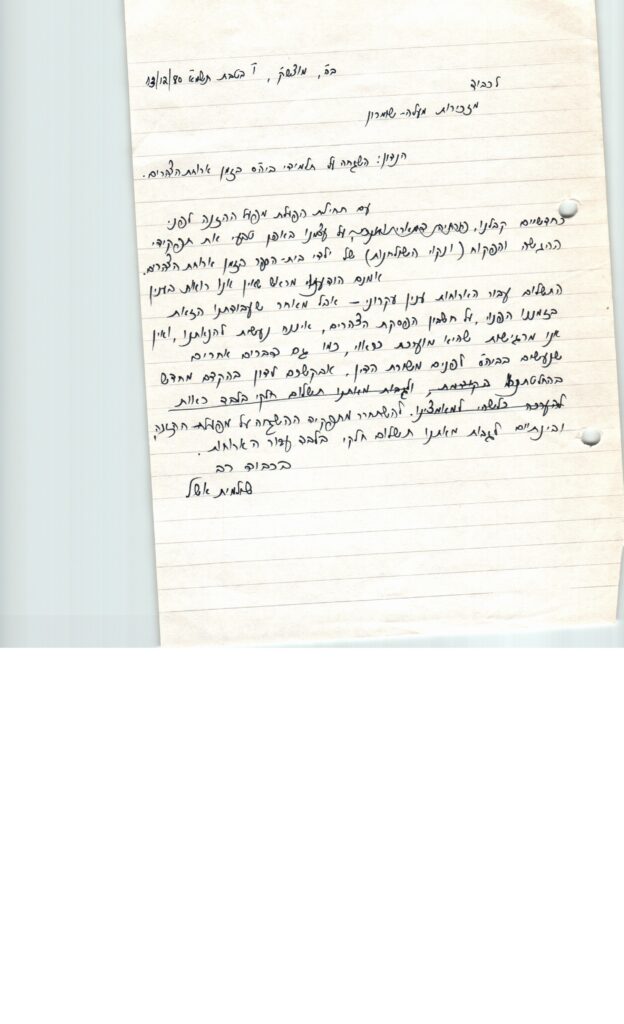 בה, מוצש"ק, ו' בטבת תשמ"א 13/12/80
לכבוד
מזכירות מעלה-שומרון
הנדון: השגחה על תלמידי ביה"ס בזמן ארוחת הצהרים.
עם תחילת הפעלת מפעל ההזנה לפני
כחדשיים קבלנו, על עצמנו באופן טבעי את תפקידי
ההגשה והפקוח (ונקוי השולחנות) של ילדי בית-הספר בזמן ארוחת הצהרים.
אומנם הודעתי מראש שאין אנו רואות בענין
התשלום עבור הארוחות ענין עקרוני – אבל מאחר שעבודתנו הזאת
בזמננו הפנוי, על חשבון הפסקת הצהרים, איננה נעשת להנאתנו, ואין
אנו מרגישות שהיא מוערכת כראוי, כמו גם דברים אחרים
שנעשים בביה"ס לפנים משורת הדין, אבקשכם לדון בהקדם מחדש
בהחלטתנו בקודמת, ולגבות מאתנו תשלום חלקי בלבד כאות
להערכה כלשהי למאמצינו. להשתחרר מתפקיד ההשגחה על מפעלת הזנה,
ובינתיים לגבות מאתנו תשלום חלקי בלבד עבור הארוחות.
בכבוד רב
שולמית אשל